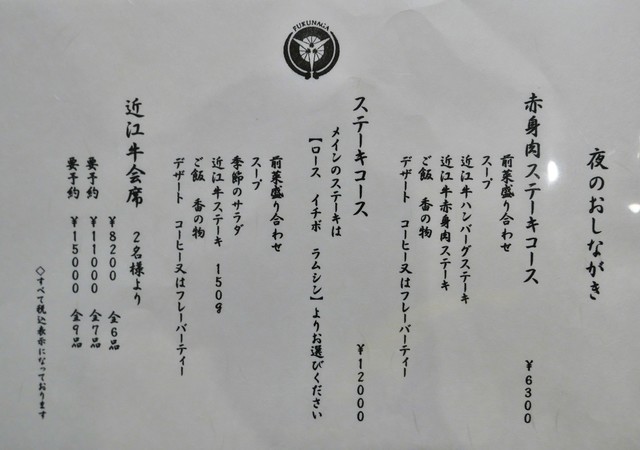 FUKUNAGA
夜のおしながき
赤身肉ステーキコース ¥6300
前菜盛り合わせ
スープ
近江牛ハンバーグステーキ
近江牛赤身肉ステーキ
ご飯 香の物
デザート コーヒー又はフレーバーティー
ステーキコース ¥12000
メインのステーキは
【ロース イチボ ラムシン】よりお選びください
前菜盛り合わせ
スープ
季節のサラダ
近江牛ステーキ 150g
ご飯 香の物
デザート コーヒー又はフレーバーティー
近江牛会席 2名様より
¥8200 全6品
要予約 ¥11000 全7品
要予約 ¥15000 全9品
◇すべて税込表示になっております